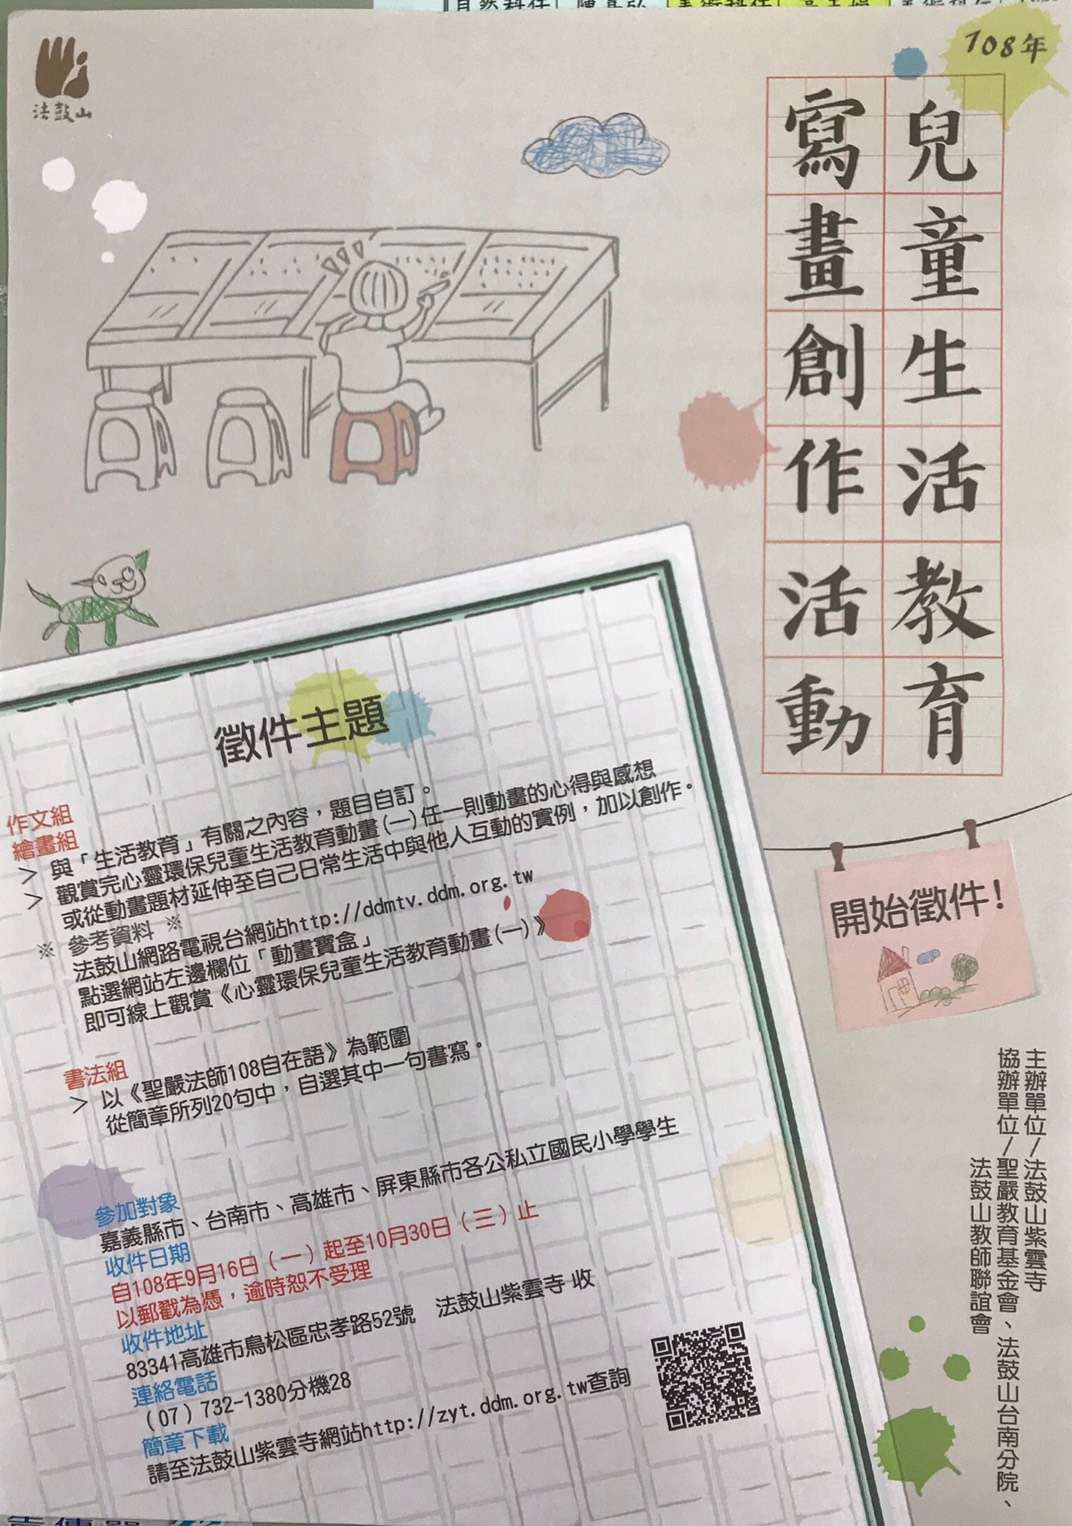 法鼓山
108年
兒童生活教育
寫畫創作活動
徵件主題
作文組
繪畫組
> 與「生活教育」有關之內容，題目自訂。
> 觀賞完心靈環保兒童生活教育動畫(一)任一則動畫的心得與感想
或從動畫題材延伸至自己日常生活中與他人互動的實例，加以創作。
※ 參考資料 ※
法鼓山網路電視台網站http://ddmtv.ddm.org.tw
點選網站左邊欄位「動畫寶盒」
即可線上觀賞《心靈環保兒童生活教育動畫(一)》
書法組
> 以《聖嚴法師108自在語》為範圍
從簡章所列20句中，自選其中一句書寫。
參加對象
嘉義縣市、台南市、高雄市、屏東縣市各公私立國民小學學生
收件日期
自108年9月16日（一）起至10月30日（三）止
以郵戳為憑，逾時恕不受理
收件地址
83341高雄市鳥松區忠孝路52號　法鼓山紫雲寺 收
連絡電話
（07）732-1380分機28
簡章下載
請至法鼓山紫雲寺網站http://zyt.ddm.org.tw查詢
開始徵件！
主辦單位/法鼓山紫雲寺
協辦單位/聖嚴教育基金會、法鼓山台南分院、
法鼓山教師聯誼會